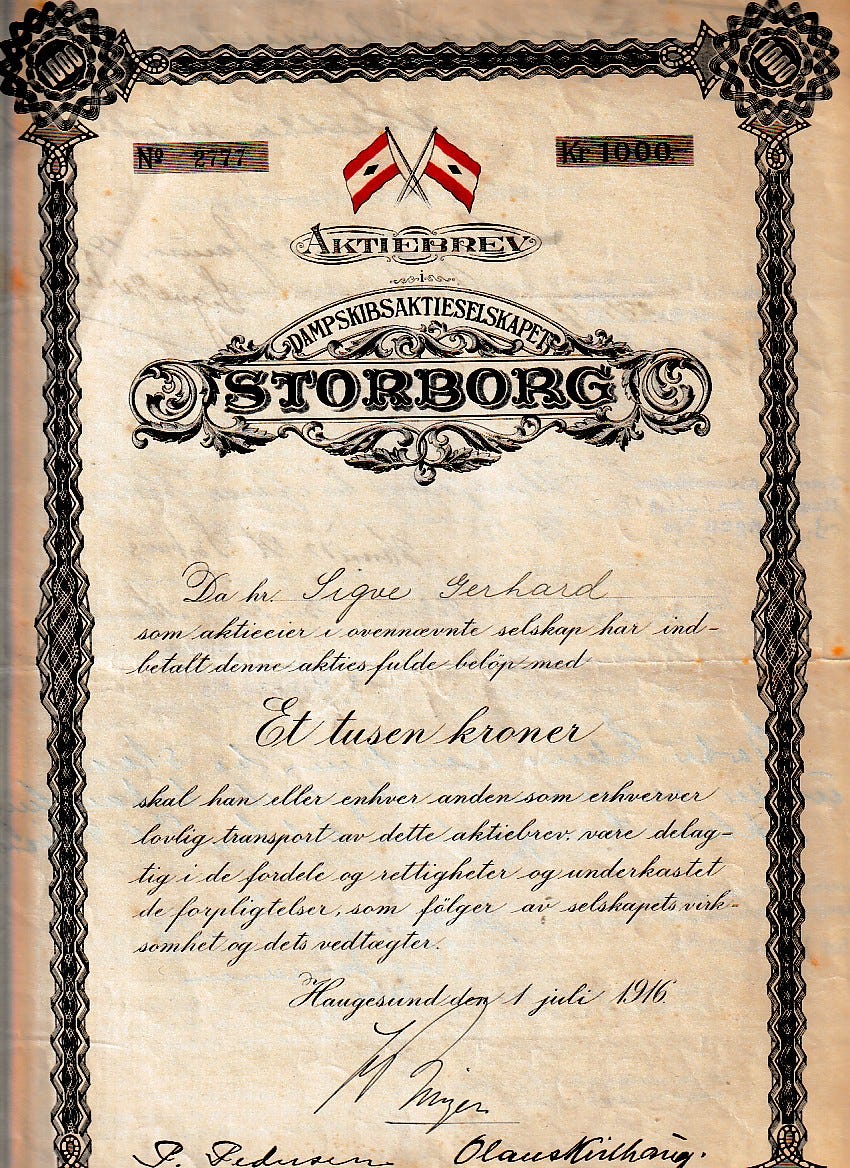 1000 1000
Nº 2777 Kr 1000.-
AKTIEBREV
i
DAMPSKIBSAKTIESELSKAPET
STORBORG
Da hr. Sigve Gerhard
som aktieeier i ovennævnte selskap har ind-
betalt denne akties fulde belöp med
Et tusen kroner
skal han eller enhver anden som erhverver
lovlig transport av dette aktiebrev, være delag-
tig i de fordele og rettigheter og underkastet
de forpligtelser, som fölger av selskapets virk-
somhet og dets vedtægter.
Haugesund den 1 juli 1916.
P. Pedersen Olaus Kirkhaug.